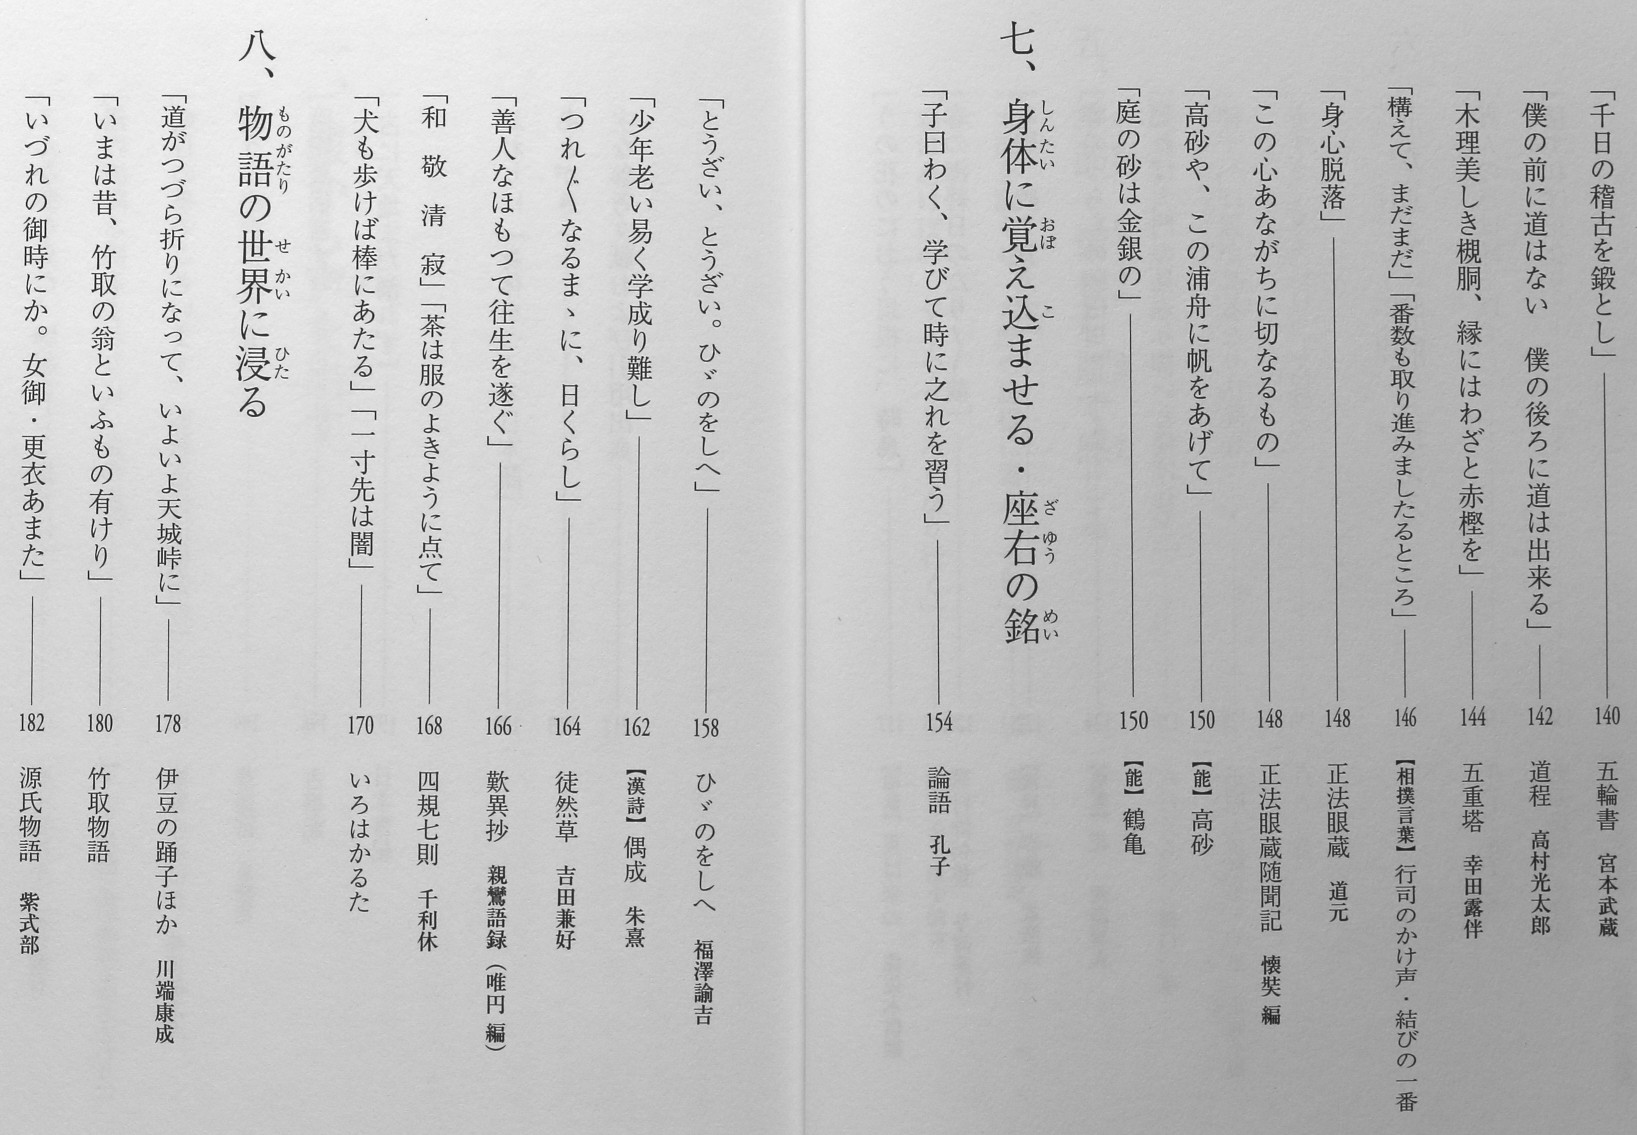 「千日の稽古を鍛とし」 140 五輪書 宮本武蔵
「僕の前に道はない 僕の後ろに道は出来る」 142 道程 高村光太郎
「木理美しき槻胴、縁にはわざと赤樫を」 144 五重塔 幸田露伴
「構えて、まだまだ」「番数も取り進みましたるところ」 146 【相撲言葉】行司のかけ声・結びの一番
「身心脱落」 148 正法眼蔵 道元
「この心あながちに切なるもの」 148 正法眼蔵随聞記 懐奘 編
「高砂や、この浦舟に帆をあげて」 150 【能】高砂
「庭の砂は金銀の」 150 【能】鶴亀
七、身体に覚え込ませる・座右の銘
しんたい おぼ こ ざ ゆう めい
「子曰わく、学びて時に之れを習う」 154 論語 孔子
「とうざい、とうざい。ひゞのをしへ」 158 ひゞのをしへ 福澤諭吉
「少年老い易く学成り難し」 162 【漢詩】偶成 朱熹
「つれ〴〵なるまゝに、日くらし」 164 徒然草 吉田兼好
「善人なほもつて往生を遂ぐ」 166 歎異抄 親鸞語録（唯円 編）
「和 敬 清 寂」「茶は服のよきように点て」 168 四規七則 千利休
「犬も歩けば棒にあたる」「一寸先は闇」 170 いろはかるた
八、物語の世界に浸る
ものがたり せ かい ひた
「道がつづら折りになって、いよいよ天城峠に」 178 伊豆の踊子ほか 川端康成
「いまは昔、竹取の翁といふもの有けり」 180 竹取物語
「いづれの御時にか。女御・更衣あまた」 182 源氏物語 紫式部